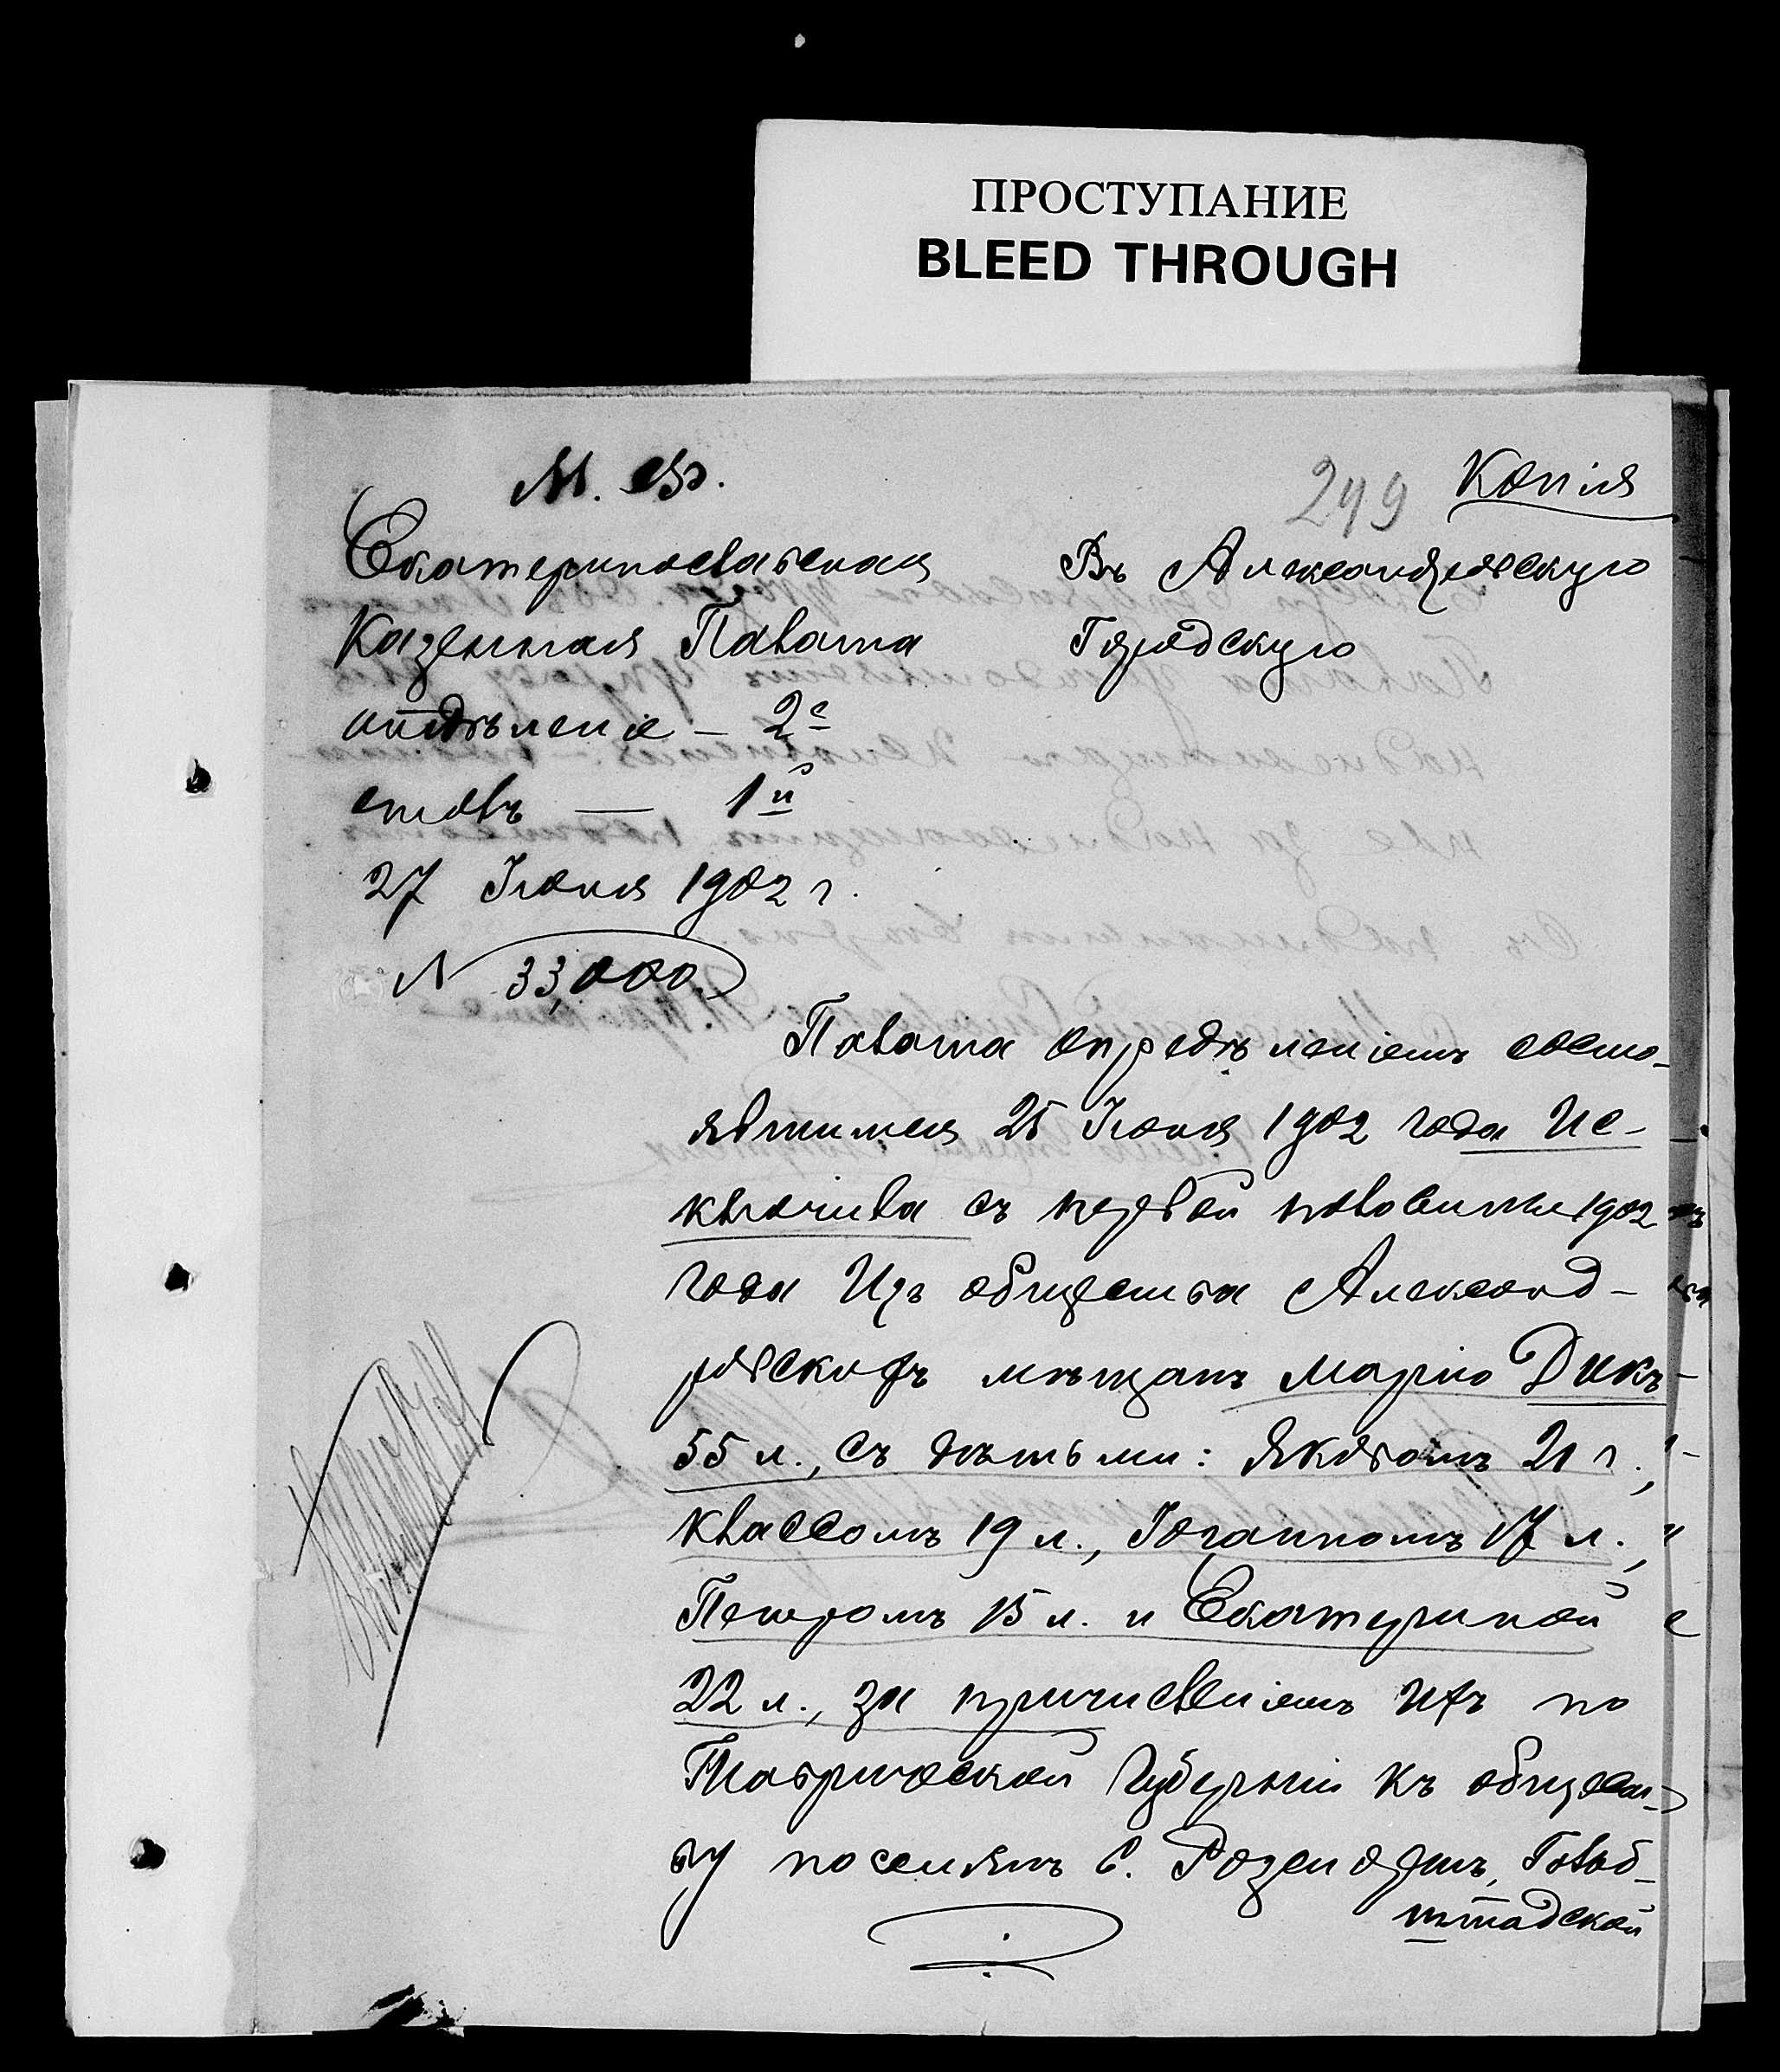 ПРОСТУПАНИЕ
BLEED THROUGH
М. Ф.
249 Копія
Екатеринославская
Казенная Палата
отдѣленіе – 2е
столъ — 1й
27 Іюня 1902 г.
N 33,000
Въ Александровскую
Городскую
Палата опредѣленіемъ состо-
явшимся 25 Іюня 1902 года ис-
ключила съ первой половины 1902
года изъ общества Александ-
ровскихъ мѣщанъ Марію Дикъ
55 л., съ дѣтьми: Яковомъ 21 г.,
Классомъ 19 л., Іоганномъ 17 л.,
Петромъ 15 л. и Екатериной
22 л., за причисленіемъ ихъ по
Таврической Губерніи къ общест-
ву поселянъ с. Розенортъ, Гальб-
штадской